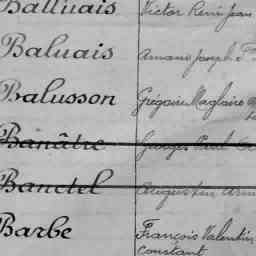 Balluais Victor René Jean
Baluais Armand Joseph
Balusson Grégoire Magloire
Banâtre Georges Paul
Banctel Auguste
Barbe François Valentin
Constant